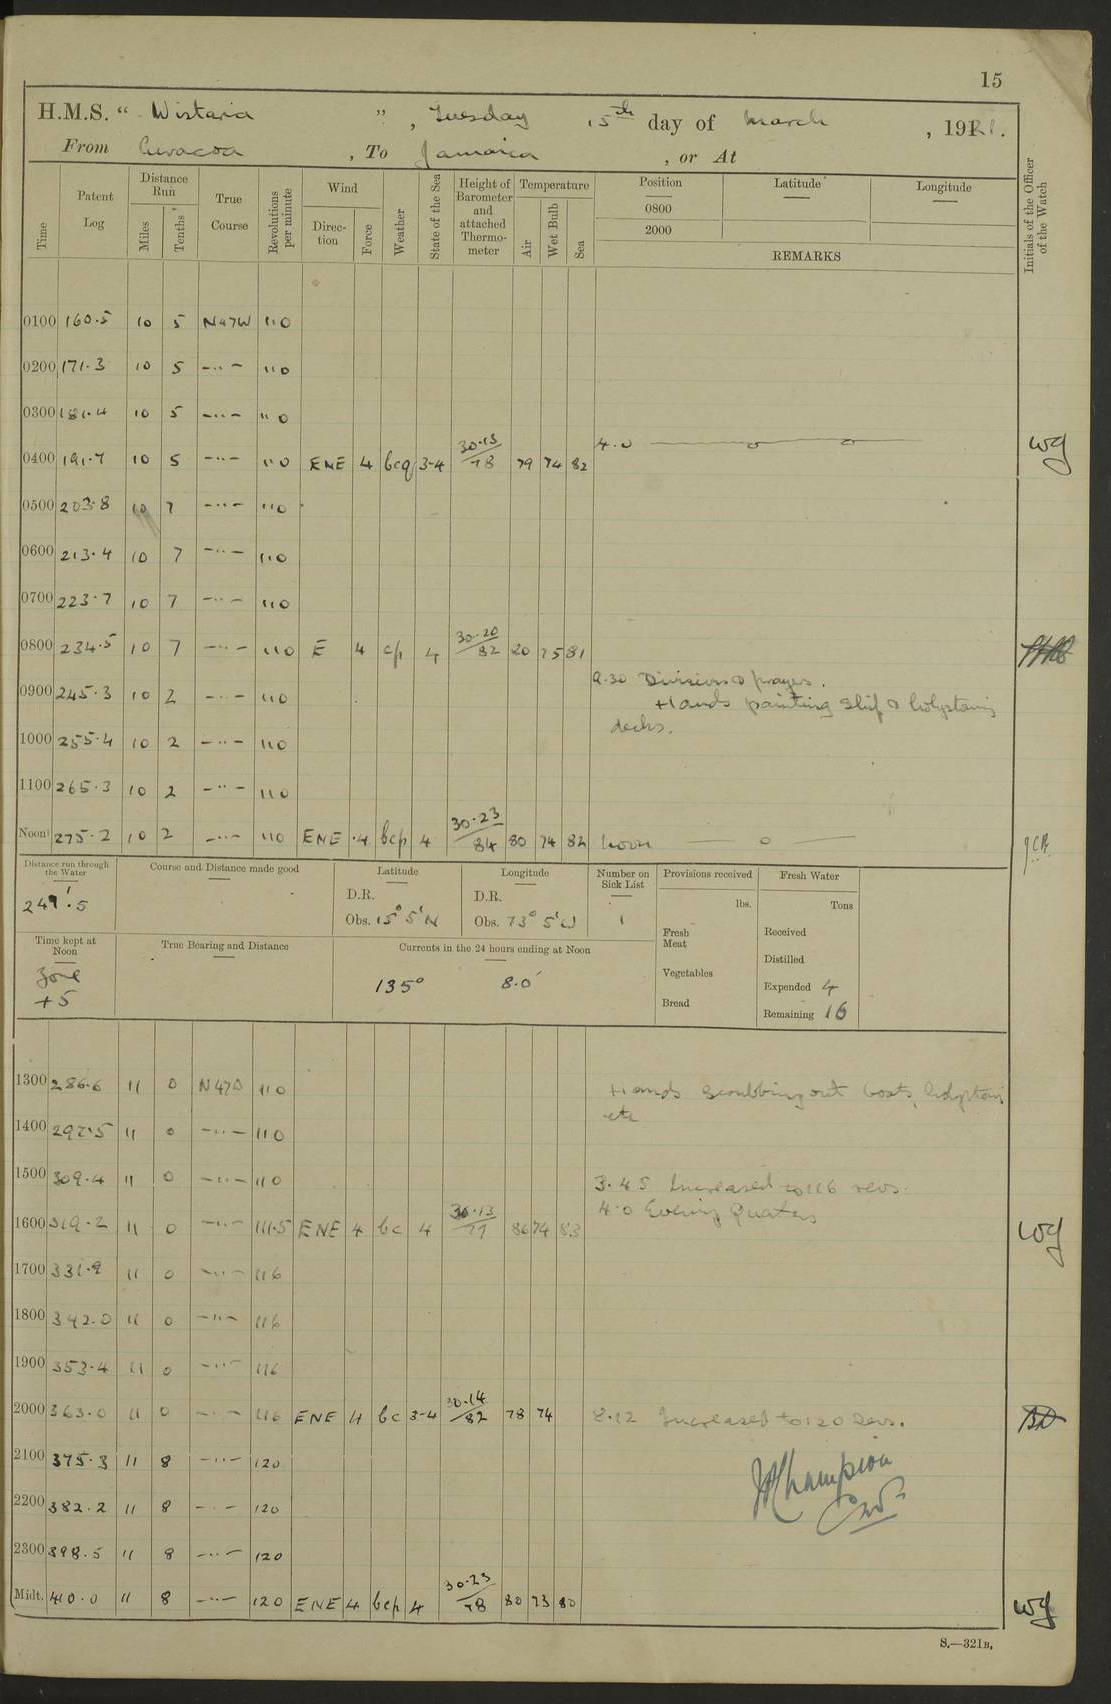 15
H.M.S. " Wistaria ", Tuesday 15th day of March, 1921.
From Curacoa, To Jamaica, or At
Time
Patent Log
Distance Run
Miles Tenths
True Course
Revolutions per minute
Wind
Direction Force
Weather
State of the Sea
Height of Barometer and attached Thermometer
Temperature
Air Wet Bulb Sea
Position Latitude Longitude
0800
2000
REMARKS
Initials of the Officer of the Watch
0100 160.5 10 5 N47W 110
0200 171.3 10 5 -"- 110
0300 181.4 10 5 -"- 110
0400 191.7 10 5 -"- 110 ENE 4 bcq 3-4 30.13/78 79 74 82 4.0 WG
0500 203.8 10 7 -"- 110
0600 213.4 10 7 -"- 110
0700 223.7 10 7 -"- 110
0800 234.5 10 7 -"- 110 E 4 cp 4 30.20/82 80 75 81
9.30 Divisions & prayers.
0900 245.3 10 2 -"- 110 Hands painting ship & holystoning
decks.
1000 255.4 10 2 -"- 110
1100 265.3 10 2 -"- 110
Noon 275.2 10 2 -"- 110 ENE 4 bcp 4 30.23/84 80 74 82 noon
Distance run through the Water
249'.5
Course and Distance made good
Latitude
D.R.
Obs. 15° 5' N
Longitude
D.R.
Obs. 73° 5' W
Number on Sick List
1
Provisions received
lbs.
Fresh Meat
Vegetables
Bread
Fresh Water
Tons
Received
Distilled
Expended 4
Remaining 16
Time kept at Noon
Zone
+5
True Bearing and Distance
Currents in the 24 hours ending at Noon
135° 8.0'
1300 286.6 11 0 N47W 110 Hands scrubbing out boats, holystoning
etc
1400 297.5 11 0 -"- 110
1500 309.4 11 0 -"- 110 3.45 Increased to 116 revs.
4.0 Evening Quarters
1600 319.2 11 0 -"- 111.5 ENE 4 bc 4 30.13/77 86 74 83 WG
1700 331.9 11 0 -"- 116
1800 342.0 11 0 -"- 116
1900 353.4 11 0 -"- 116
2000 363.0 11 0 -"- 116 ENE 4 bc 3-4 30.14/82 78 74 8.12 Increased to 120 Revs.
2100 375.3 11 8 -"- 120
2200 382.2 11 8 -"- 120
2300 398.5 11 8 -"- 120
Midt. 410.0 11 8 -"- 120 ENE 4 bcp 4 30.23/78 80 73 80 WG
Champion
S.—321B.